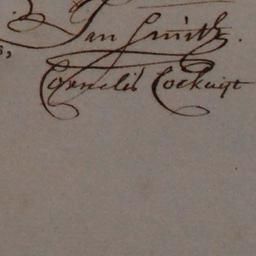 Jan Smith.
Cornelis Cockuijt